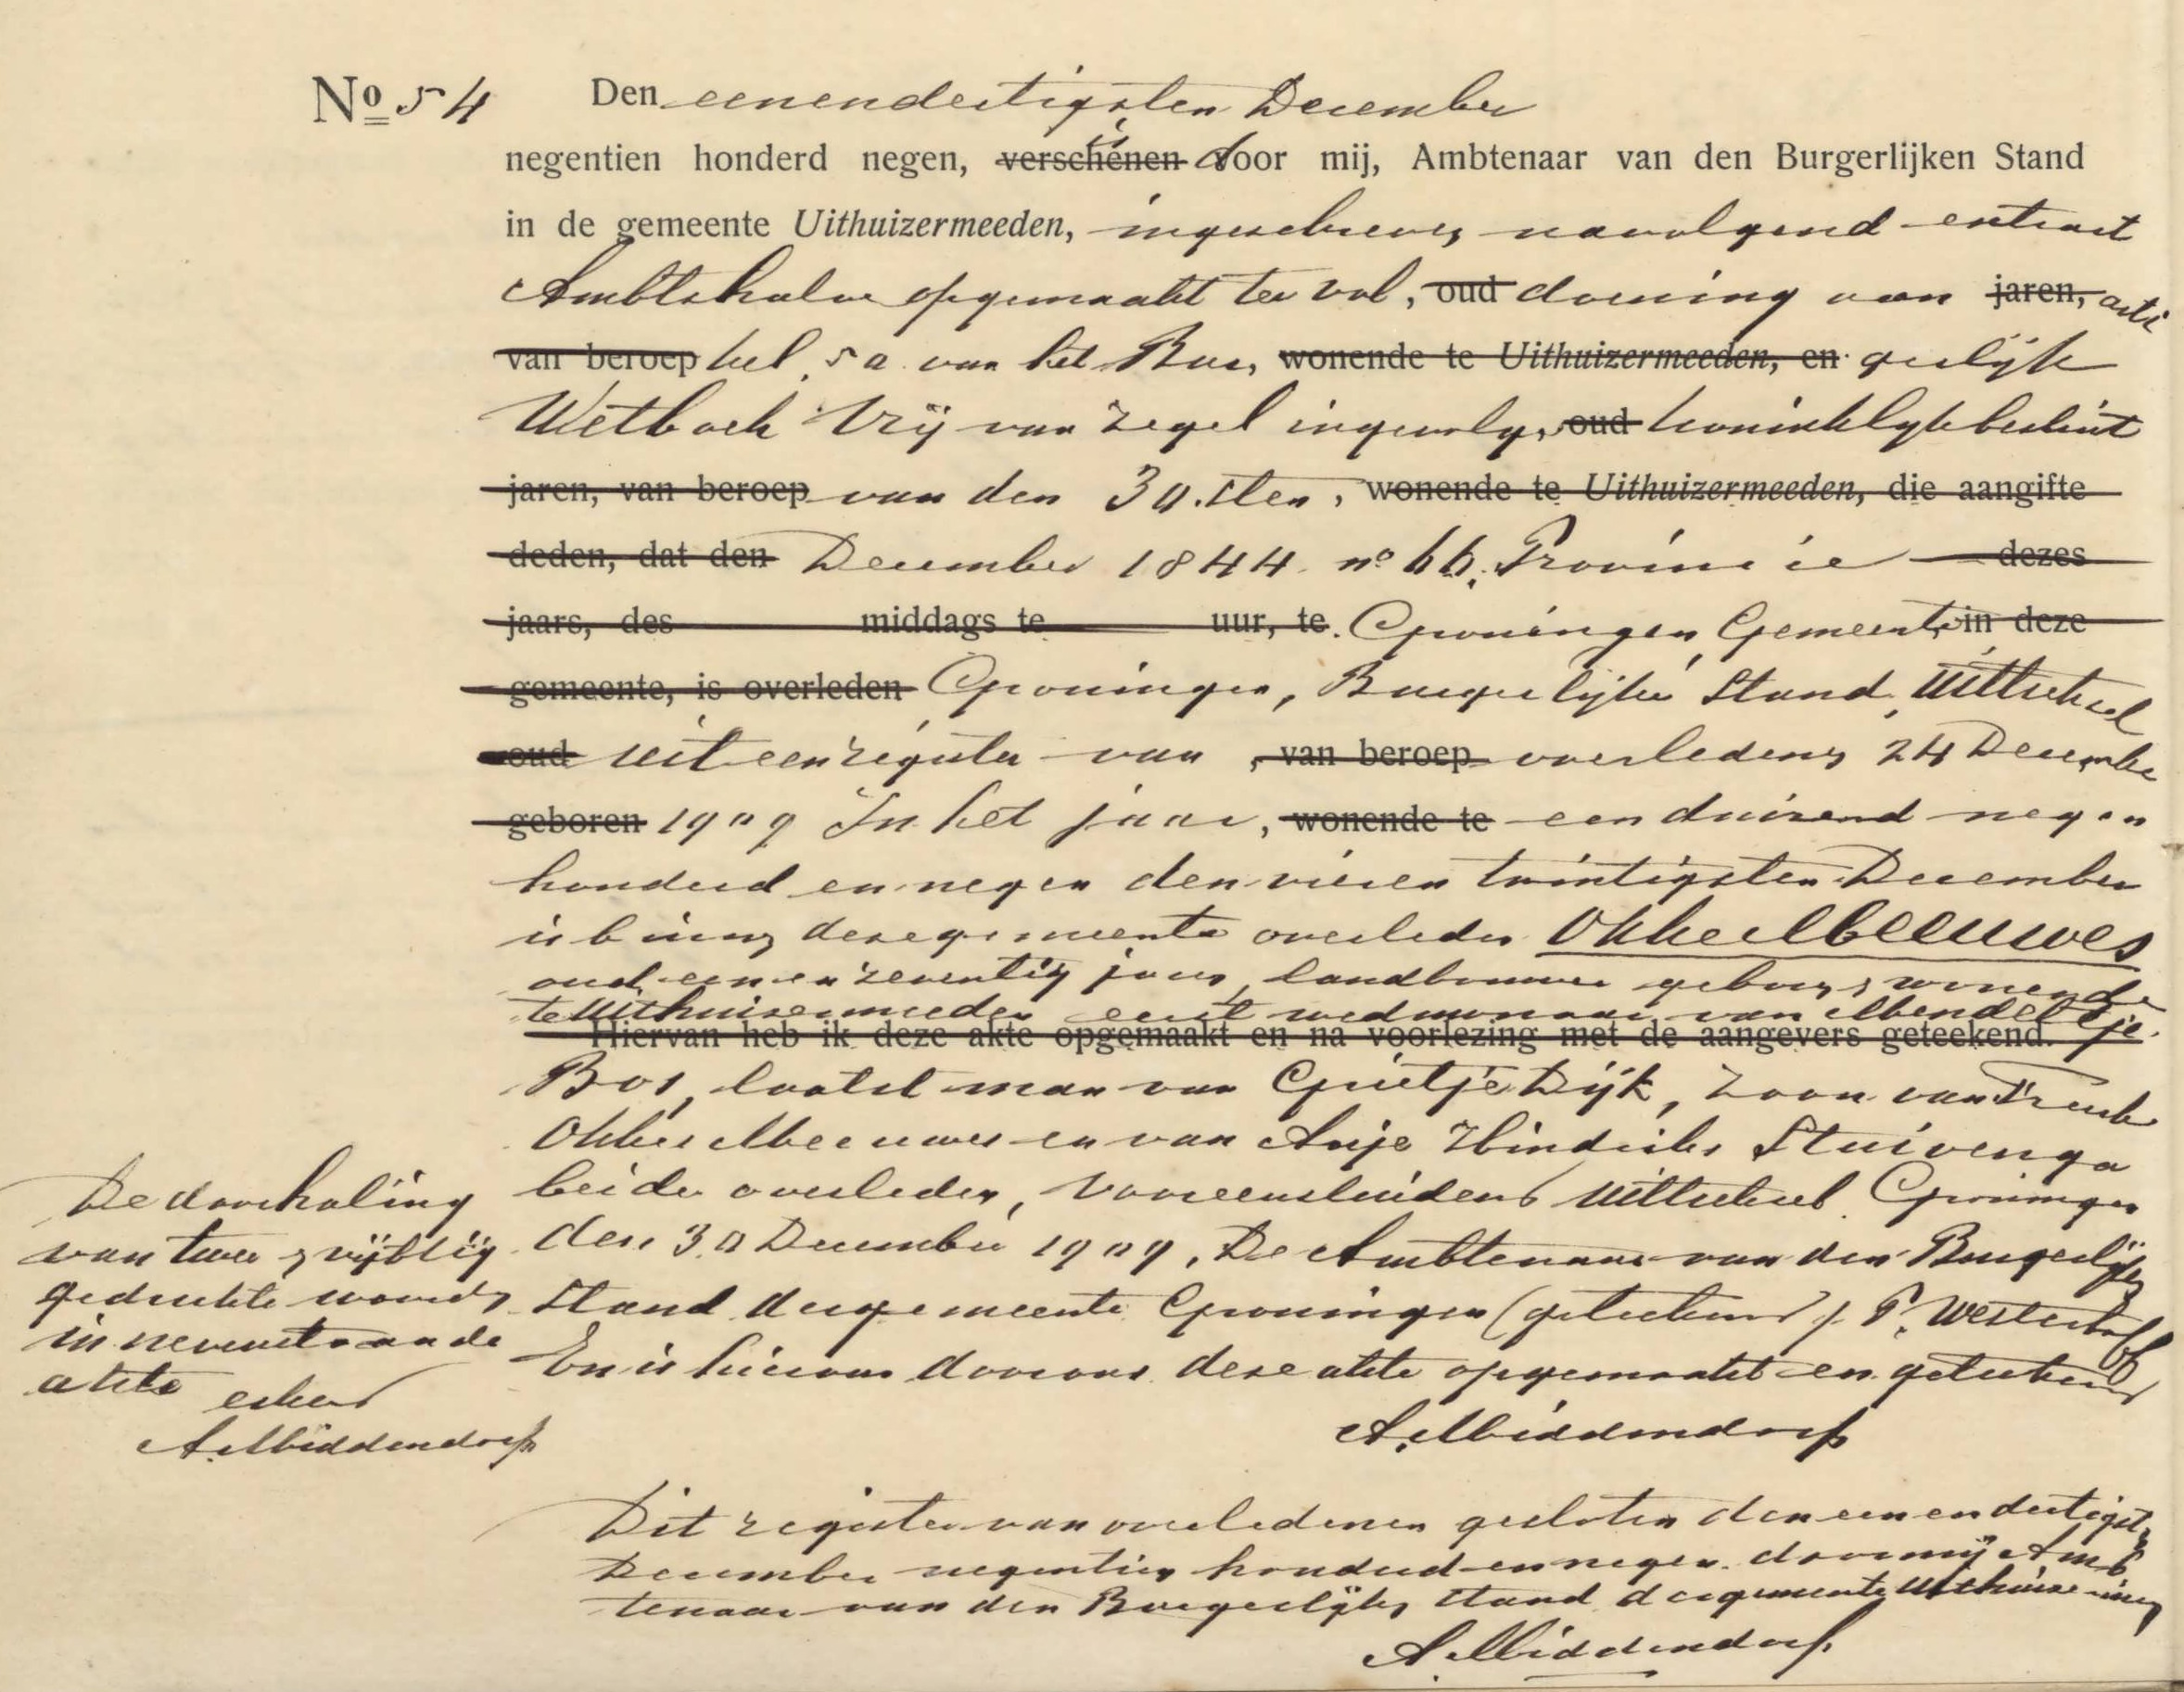 No 54 Den eenendertigsten December
is
negentien honderd negen, verschenen door mij, Ambtenaar van den Burgerlijken Stand
in de gemeente Uithuizermeeden, ingeschreven navolgend extract
Ambtshalve opgemaakt ter vol, oud doening aan jaren, arti
van beroep kel 5a van het Bur, wonende te Uithuizermeeden, en gerlijk
Wetboek Vrij van zegel ingevolge, oud koninklijk besluit
jaren, van beroep van den 30.sten, wonende te Uithuizermeeden, die aangifte
deden, dat den December 1844 no 66. Provincie dezes
jaars, des middags te uur, te. Groningen Gemeente, in deze
gemeente, is overleden Groningen, Burgerlijke Stand, Uittreksel
oud uit een register van , van beroep overledenen 24 December
geboren 1909 In het jaar, wonende te een duizend negen
honderd en negen den vieren twintigsten December
is binnen deze gemeente overleden Okke Meeuwes
oud een en zeventig jaar, landbouwer geboren, wonende
te Uithuizermeeden eerst weduwnaar van Mendeltje
Hiervan heb ik deze akte opgemaakt en na voorlezing met de aangevers geteekend.
Bos, laatst man van Grietje Dijk, zoon van Freerk
Okkes Meeuwes en van Anje Hindriks Stuivenga
beide overleden, Vooreensluidend Uittreksel. Groningen
den 30 December 1909, De Ambtenaar van den Burgerlijken
Stand der gemeente Groningen (geteekend) P. Westerhoff
En is hiervan door ons deze akte opgemaakt en geteekend
A. Middendorp
De doorhaling
van twee en vijftig
gedrukte woorden
in nevenstaande
akte erkend
A. Middendorp
Dit register van overledenen gesloten den een en dertigsten
December negentien honderd en negen door mij Amb
tenaar van den Burgerlijken Stand der gemeente Uithuizermeeden
A. Middendorp